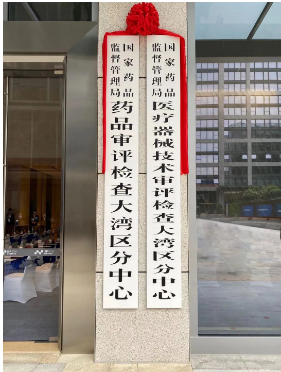 国家药品
监督管理局
医疗器械技术审评检查大湾区分中心
国家药品
监督管理局
药品审评检查大湾区分中心